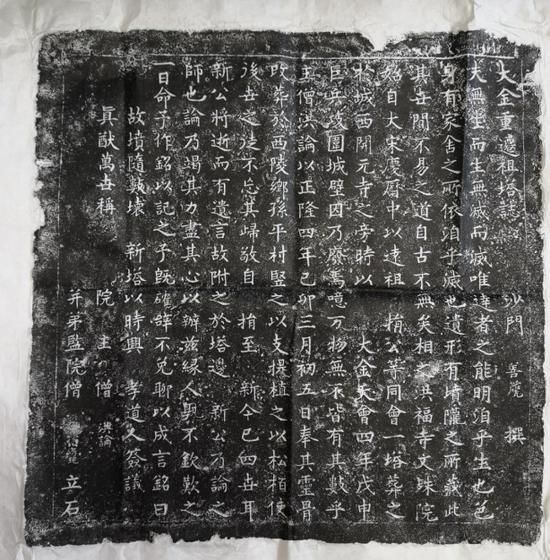 大金重遷祖塔誌 沙門 善 撰
夫無生而生無滅而滅唯達者之能明洎乎生也色
身有家舍之所依洎乎滅也遺形有墳隴之所藏此
其世間不易之道自古不無矣相之洪福寺文殊院
始自大宋慶曆中以遠祖 捎公等同會一塔葬之
於城西開元寺之旁時以 大金天會四年戊申
巨兵攻圍城壁因乃廢焉噫万物無不皆有其數乎
主僧洪論以正隆四年己卯三月初五日奉其靈骨
改葬於西陵鄉孫平村竪之以支提植之以松栢使
後世之徒不忘其歸敬自 捎至 新今已四世耳
新公將逝而有遺言故附之於塔邊 新公乃論之
師也論乃竭其力盡其心以辦茲緣人興不欽歎之
一日命予作銘以記之予旣確辤不免聊以成言銘曰
故墳隨毀壞 新塔以時興 孝道久僉議
眞猷萬世稱 院主僧 洪論
并弟監院僧 立石